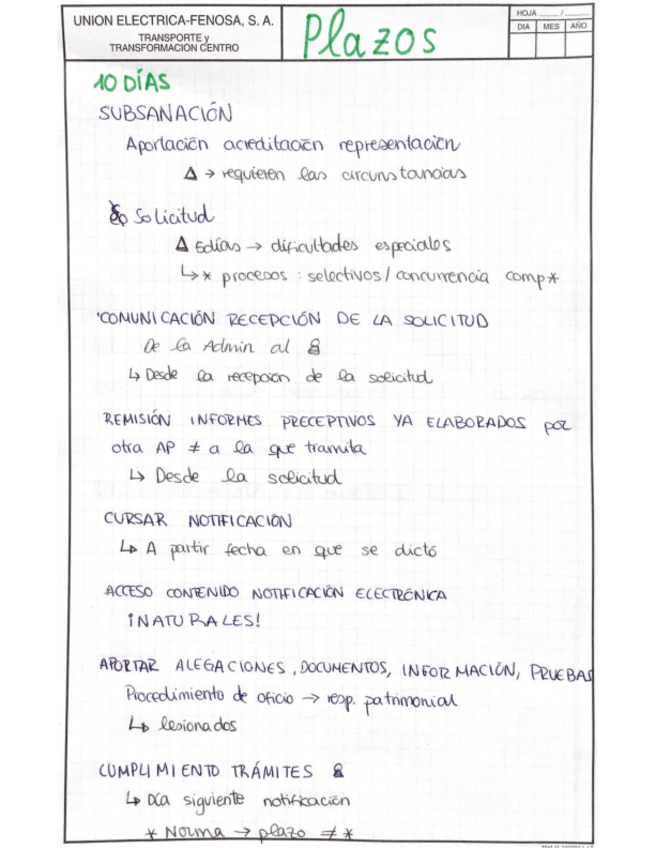 UNION ELECTRICA-FENOSA, S. A.
TRANSPORTE y
TRANSFORMACION CENTRO
Plazos
HOJA ____ / ____
DIA MES AÑO
10 DÍAS
SUBSANACIÓN
Aportación acreditación representación
Δ → requieren las circunstancias
Solicitud
Δ 5días → dificultades especiales
↳ * procesos : selectivos / concurrencia comp *
COMUNICACIÓN RECEPCIÓN DE LA SOLICITUD
De la Admin al
↳ Desde la recepción de la solicitud
REMISIÓN INFORMES PRECEPTIVOS YA ELABORADOS por
otra AP ≠ a la que tramita
↳ Desde la solicitud
CURSAR NOTIFICACIÓN
↳ A partir fecha en que se dictó
ACCESO CONTENIDO NOTIFICACIÓN ELECTRÓNICA
¡NATURALES!
APORTAR ALEGACIONES, DOCUMENTOS, INFORMACIÓN, PRUEBAS
Procedimiento de oficio → resp. patrimonial
↳ lesionados
CUMPLIMIENTO TRÁMITES
↳ Día siguiente notificación
* Norma → plazo ≠ *